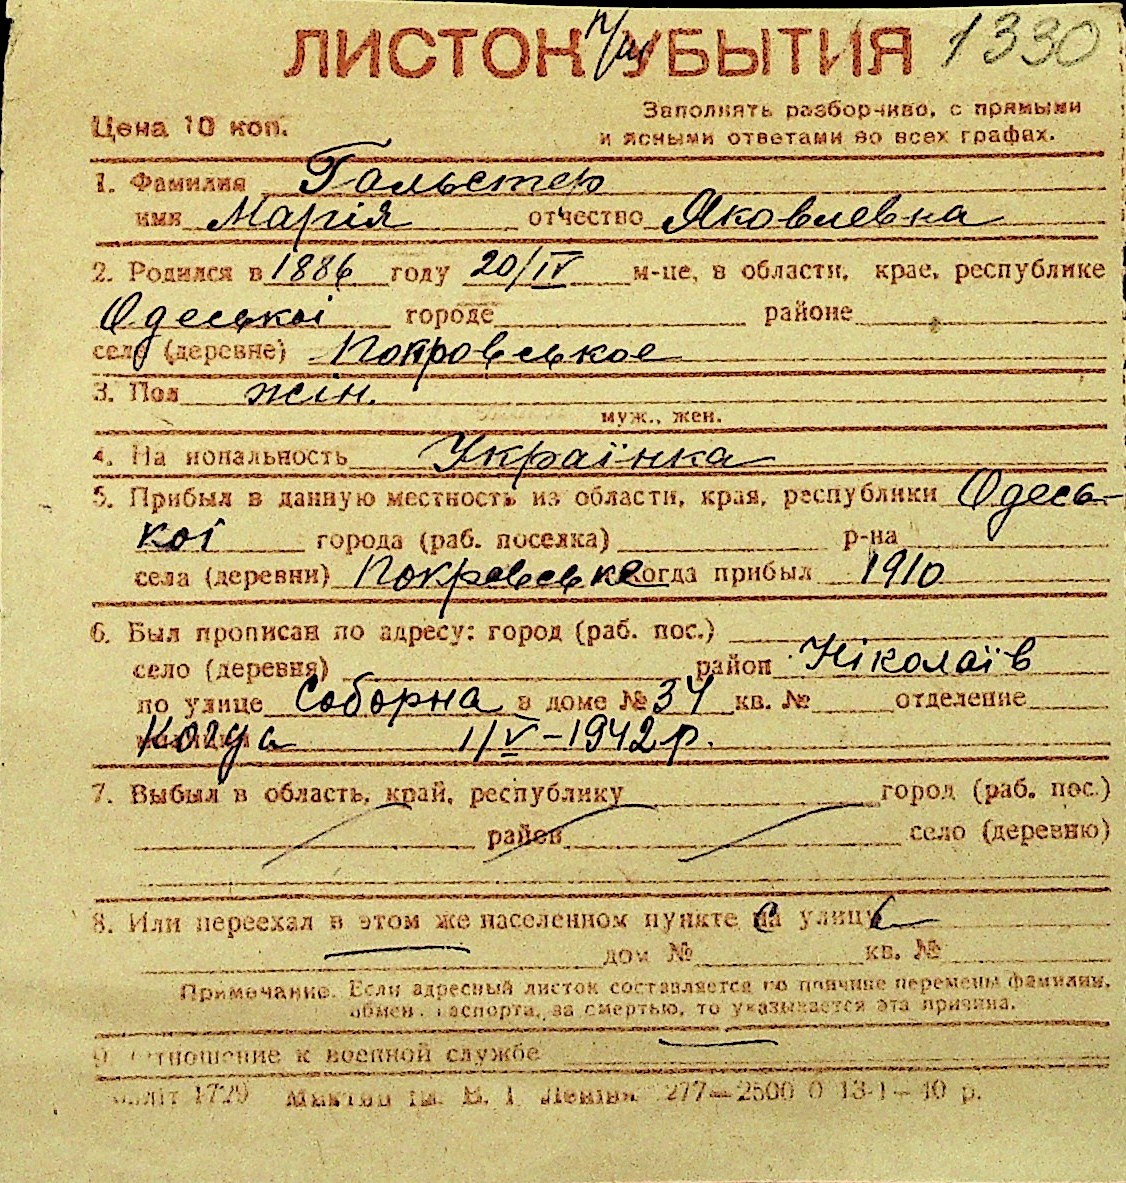 ЛИСТОК УБЫТИЯ 1330
Заполнять разборчиво, с прямыми
Цена 10 коп.
и ясными ответами во всех графах.
1. Фамилия Гольстер
имя Марія отчество Яковлевна
2. Родился в 1886 году 20/IV м-це, в области, крае, республике
Одеськоі городе районе
селе (деревне) Покровськое
3. Пол жін.
муж., жен.
4. На иональность Українка
5. Прибыл в данную местность из области, края, республики Одесь-
коі города (раб. поселка) р-на
села (деревни) Покровське когда прибыл 1910
6. Был прописан по адресу: город (раб. пос.)
село (деревня) район Ніколаїв
по улице Соборна в доме № 34 кв. № отделение
Когда 1/V-1942 р.
7. Выбыл в область, край, республику город (раб. пос.)
район село (деревню)
8. Или переехал в этом же населенном пункте на улицу
дом № кв. №
Примечание. Если адресный листок составляется по причине перемены фамилии,
обмен. паспорта, за смертью, то указывается эта причина.
9. Отношение к военной службе
1729 В. І. Леніна 277—2500 0 13-1-40 р.